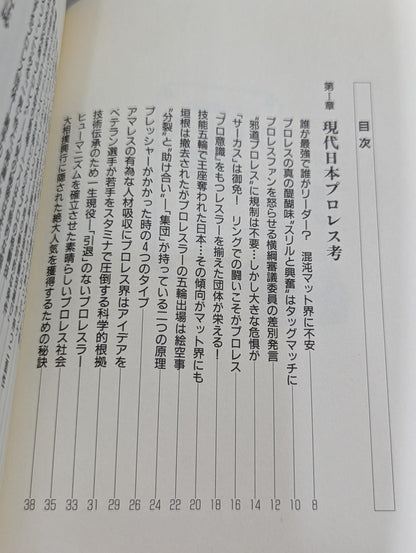 目次
第1章 現代日本プロレス考
誰が最強で誰がリーダー？ 混沌マット界に不安 8
プロレスの真の醍醐味〝スリルと興奮〟はタッグマッチに 10
プロレスファンを怒らせる横綱審議委員の差別発言 12
〝邪道プロレス〟に規制は不要…しかし大きな危惧が 14
「サーカス」は御免！ リングでの闘いこそがプロレス 16
〝プロ意識〟をもつレスラーを揃えた団体が栄える！ 18
技能五輪で王座奪われた日本…その傾向がマット界にも 20
垣根は撤去されたがプロレスラーの五輪出場は絵空事 22
〝分裂〟と〝助け合い〟―「集団」が持っている二つの原理 24
プレッシャーがかかった時の4つのタイプ 26
アマレスの有為な人材吸収にプロレス界はアイデアを 29
ベテラン選手が若手をスタミナで圧倒する科学的根拠 31
技術伝承のため一生現役！「引退」のないプロレスラー 33
ヒューマニズムを確立させた素晴らしいプロレス社会 35
大相撲興行に隠された絶大人気を獲得するための秘訣 38